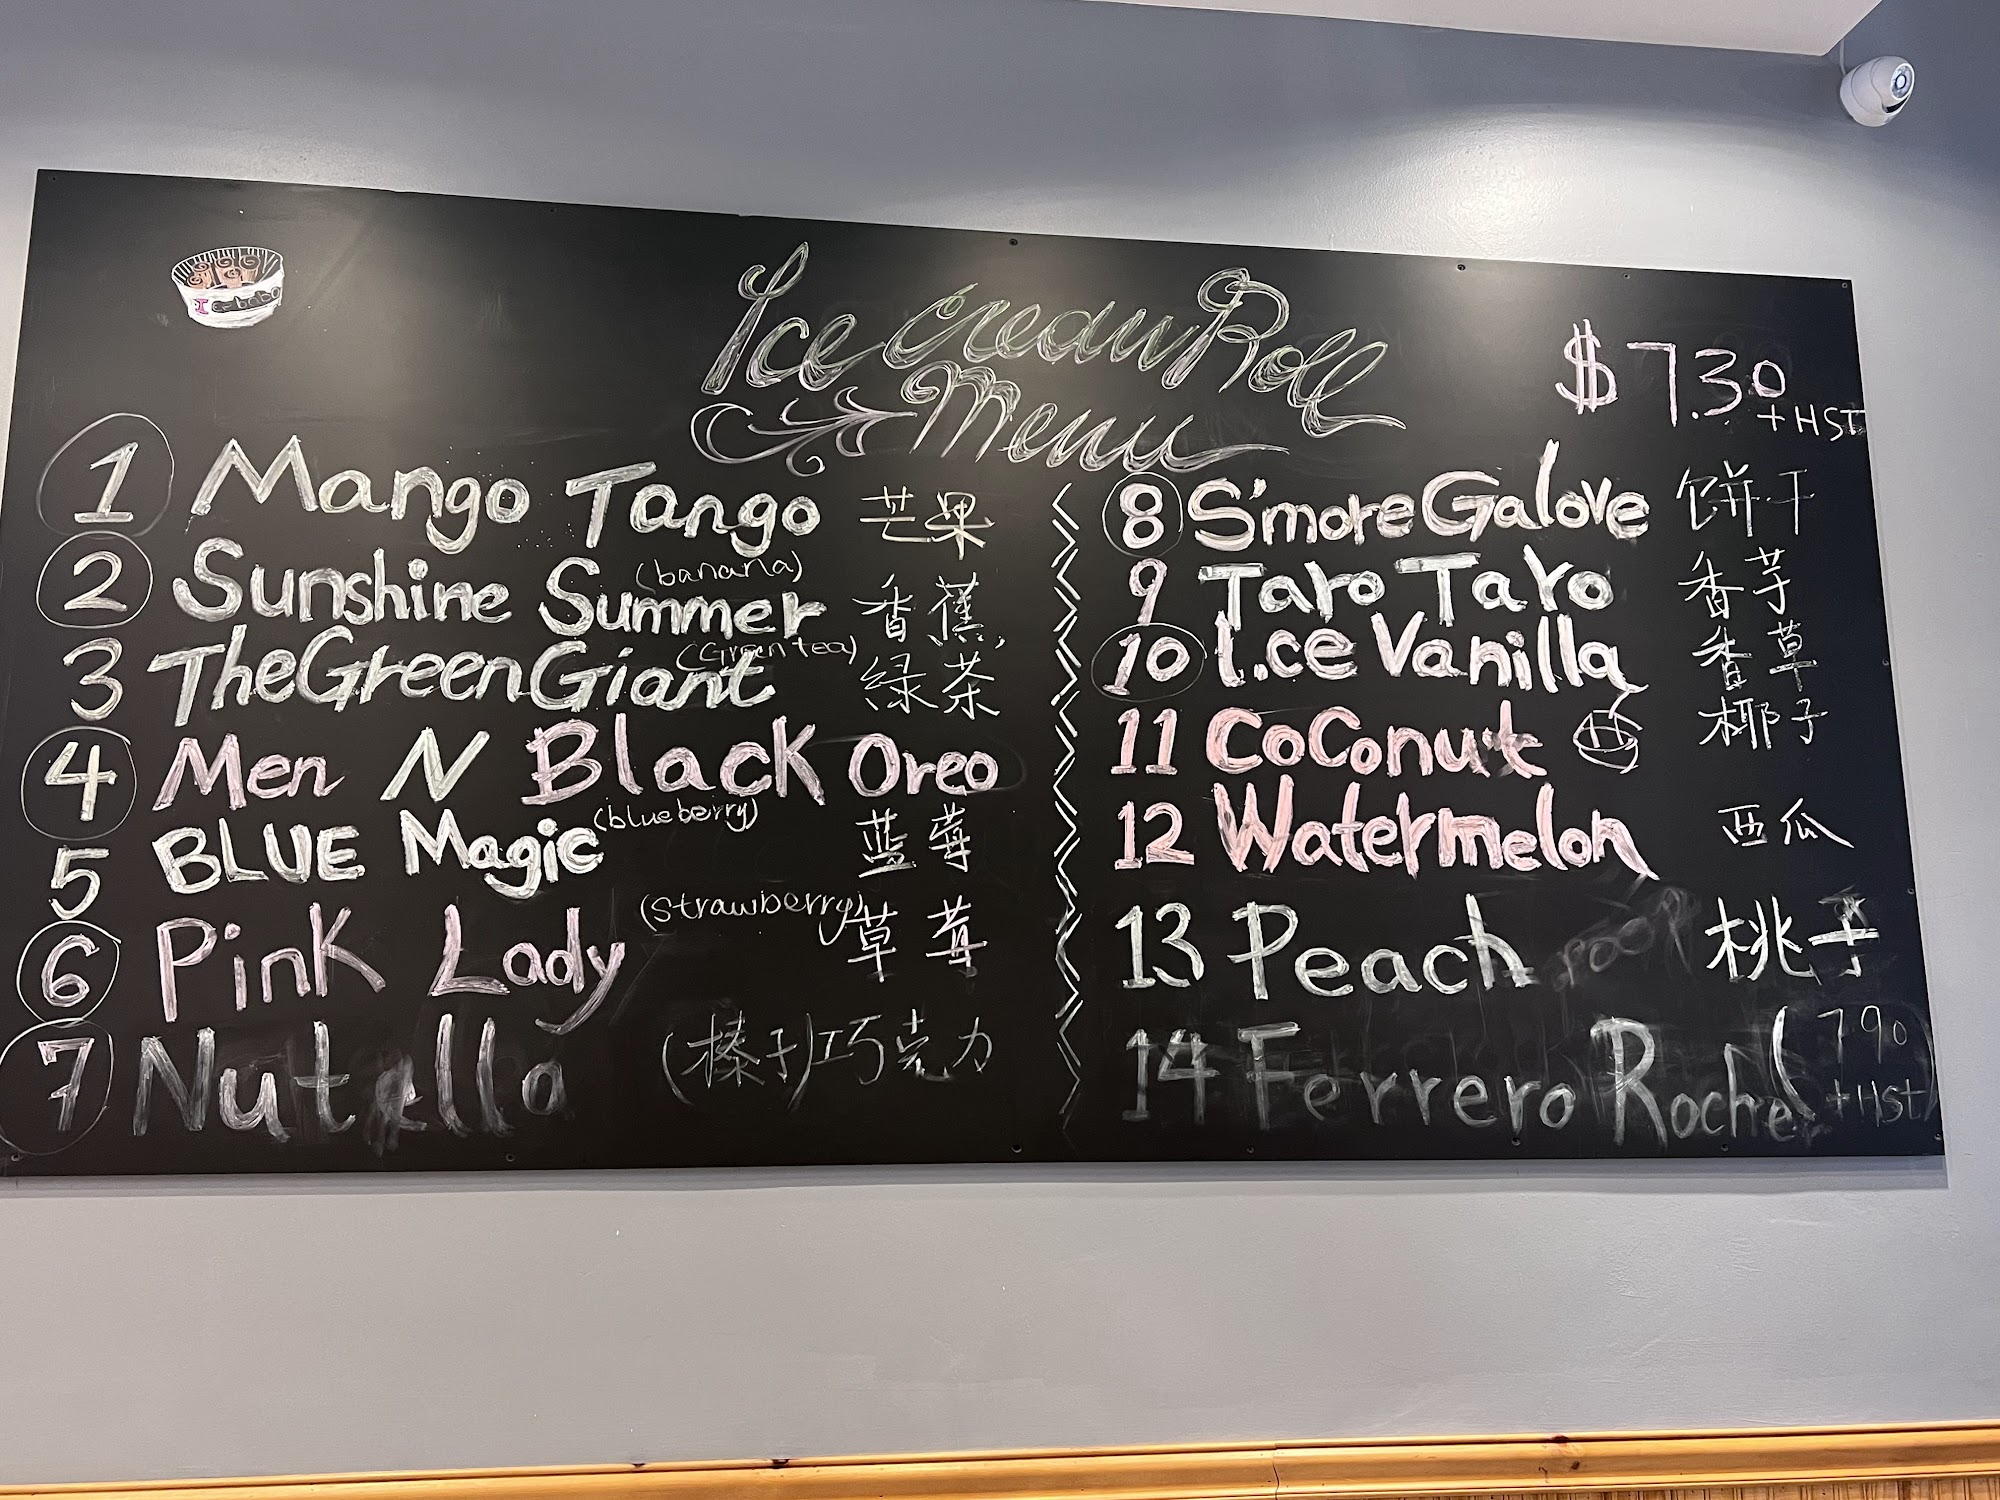 Ice cream Roll
Menu
$7.30
+ HST
1 Mango Tango 芒果
2 Sunshine Summer (banana) 香蕉
3 The Green Giant (Green tea) 绿茶
4 Men N Black Oreo
5 BLUE Magic (blueberry) 蓝莓
6 Pink Lady (strawberry) 草莓
7 Nutella (榛子)巧克力
8 S'more Galove 饼干
9 Taro Taro 香芋
10 I.ce Vanilla 香草
11 CoConut 椰子
12 Watermelon 西瓜
13 Peach 桃子
14 Ferrero Rocher 7.90
+ HST